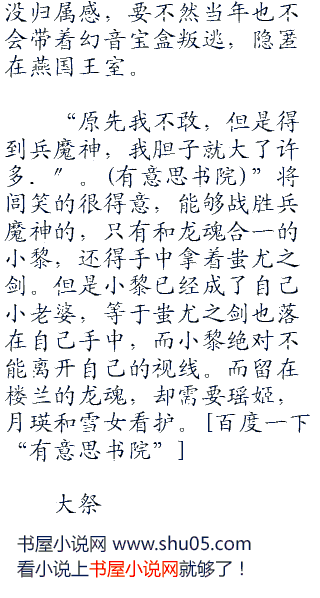 没归属感，要不然当年也不
会带着幻音宝盒叛逃，隐匿
在燕国王室。
“原先我不敢，但是得
到兵魔神，我胆子就大了许
多．〞。(有意思书院)”将
闾笑的很得意，能够战胜兵
魔神的，只有和龙魂合一的
小黎，还得手中拿着蚩尤之
剑。但是小黎已经成了自己
小老婆，等于蚩尤之剑也落
在自己手中，而小黎绝对不
能离开自己的视线。而留在
楼兰的龙魂，却需要瑶姬，
月瑛和雪女看护。[百度一下
“有意思书院”]
大祭
书屋小说网 www.shu05.com
看小说上书屋小说网就够了！